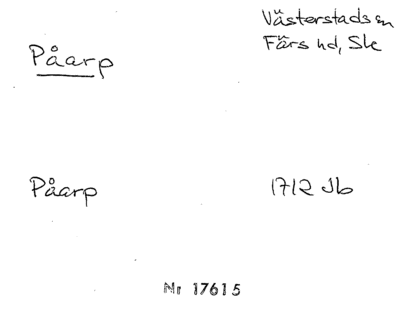 Påarp
Västerstads sn
Färs hd, Ske
Påarp
1712 Jb
Nr 17615